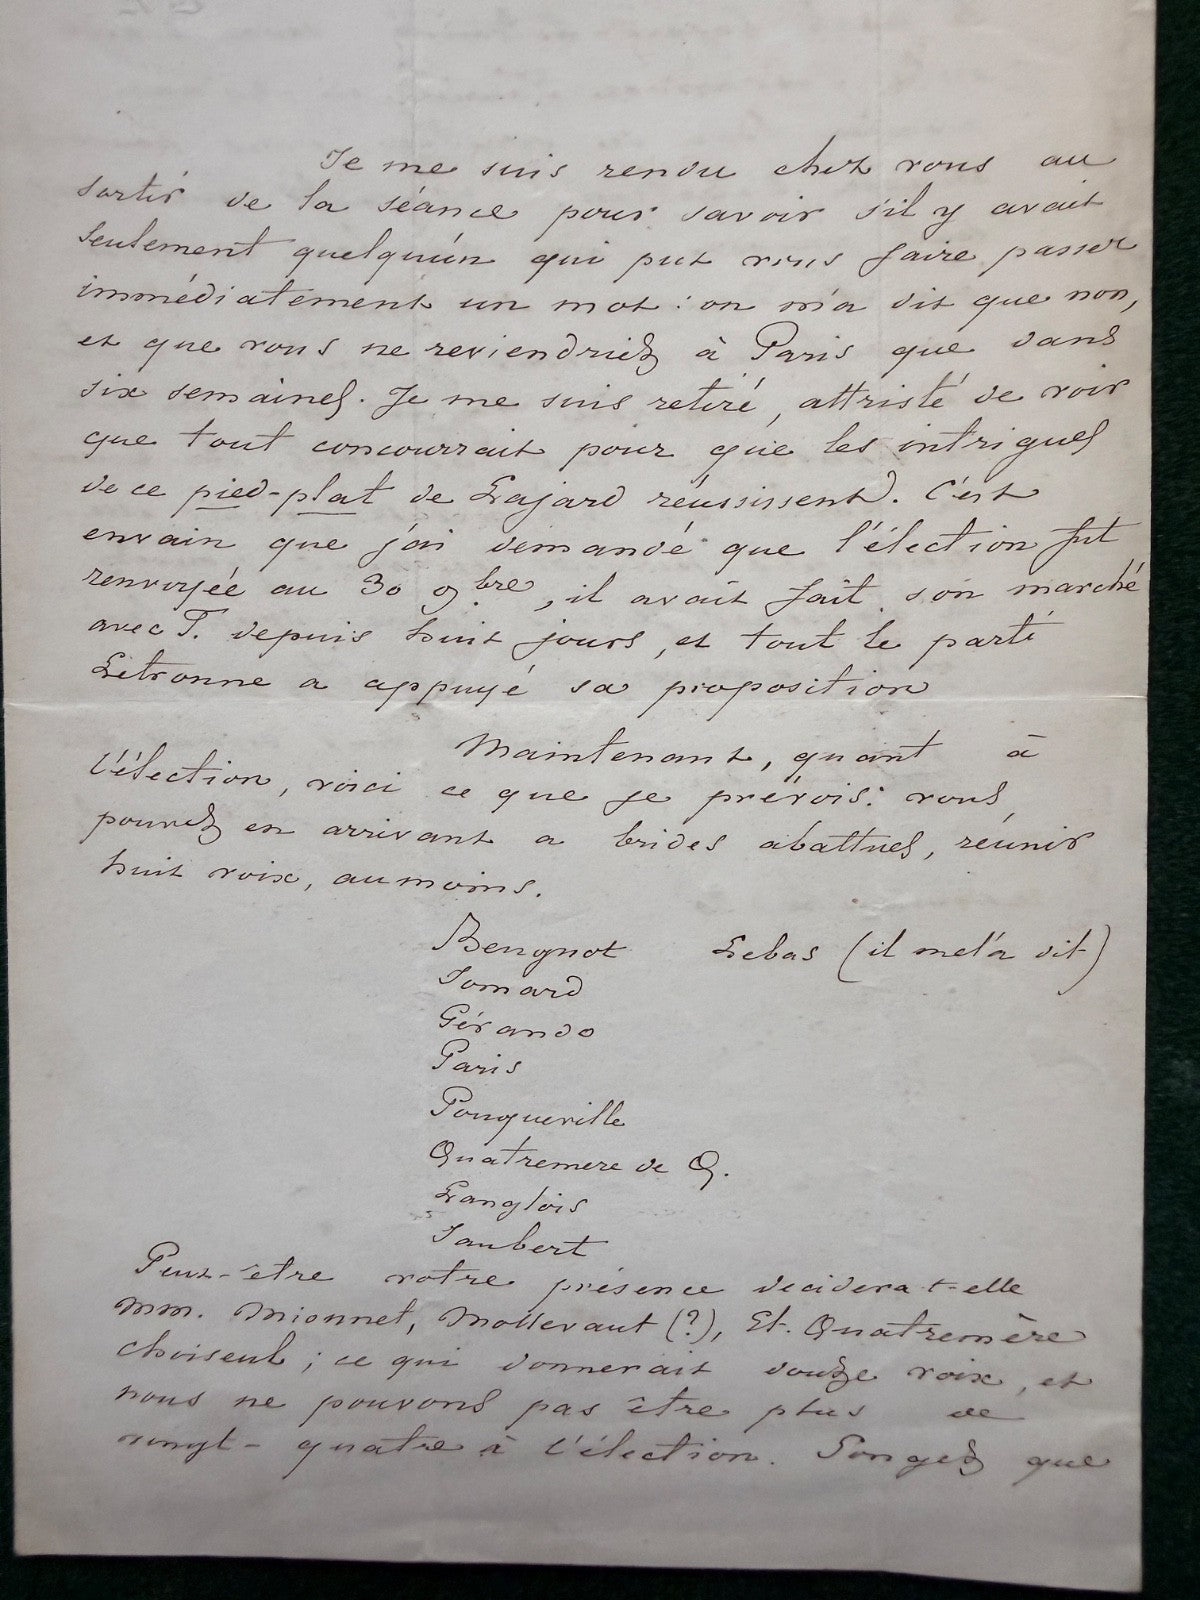 Je me suis rendu chez vous au
sortir de la séance pour savoir s'il y avait
seulement quelqu'un qui put vous faire passer
immédiatement un mot : on m'a dit que non,
et que vous ne reviendriez à Paris que dans
six semaines. Je me suis retiré, attristé de voir
que tout concourrait pour que les intrigues
de ce pied-plat de Lajard réussissent. C'est
envain que j'ai demandé que l'élection fut
renvoyée au 30 9bre, il avait fait son marché
avec T. depuis huit jours, et tout le parti
Letronne a appuyé sa proposition
Maintenant, quant à
l'élection, voici ce que je prévois : vous
pouvez en arrivant a brides abattues, réunir
huit voix, au moins.
Beugnot Lebas (il me l'a dit)
Jomard
Gérando
Paris
Pouqueville
Quatremere de Q.
Langlois
Jaubert
Peut-être votre présence decidera-t-elle
MM. Mionnet, Mollevaut (?), Et. Quatremère
Choiseul ; ce qui donnerait douze voix, et
nous ne pouvons pas être plus de
vingt-quatre à l'élection. Songez que